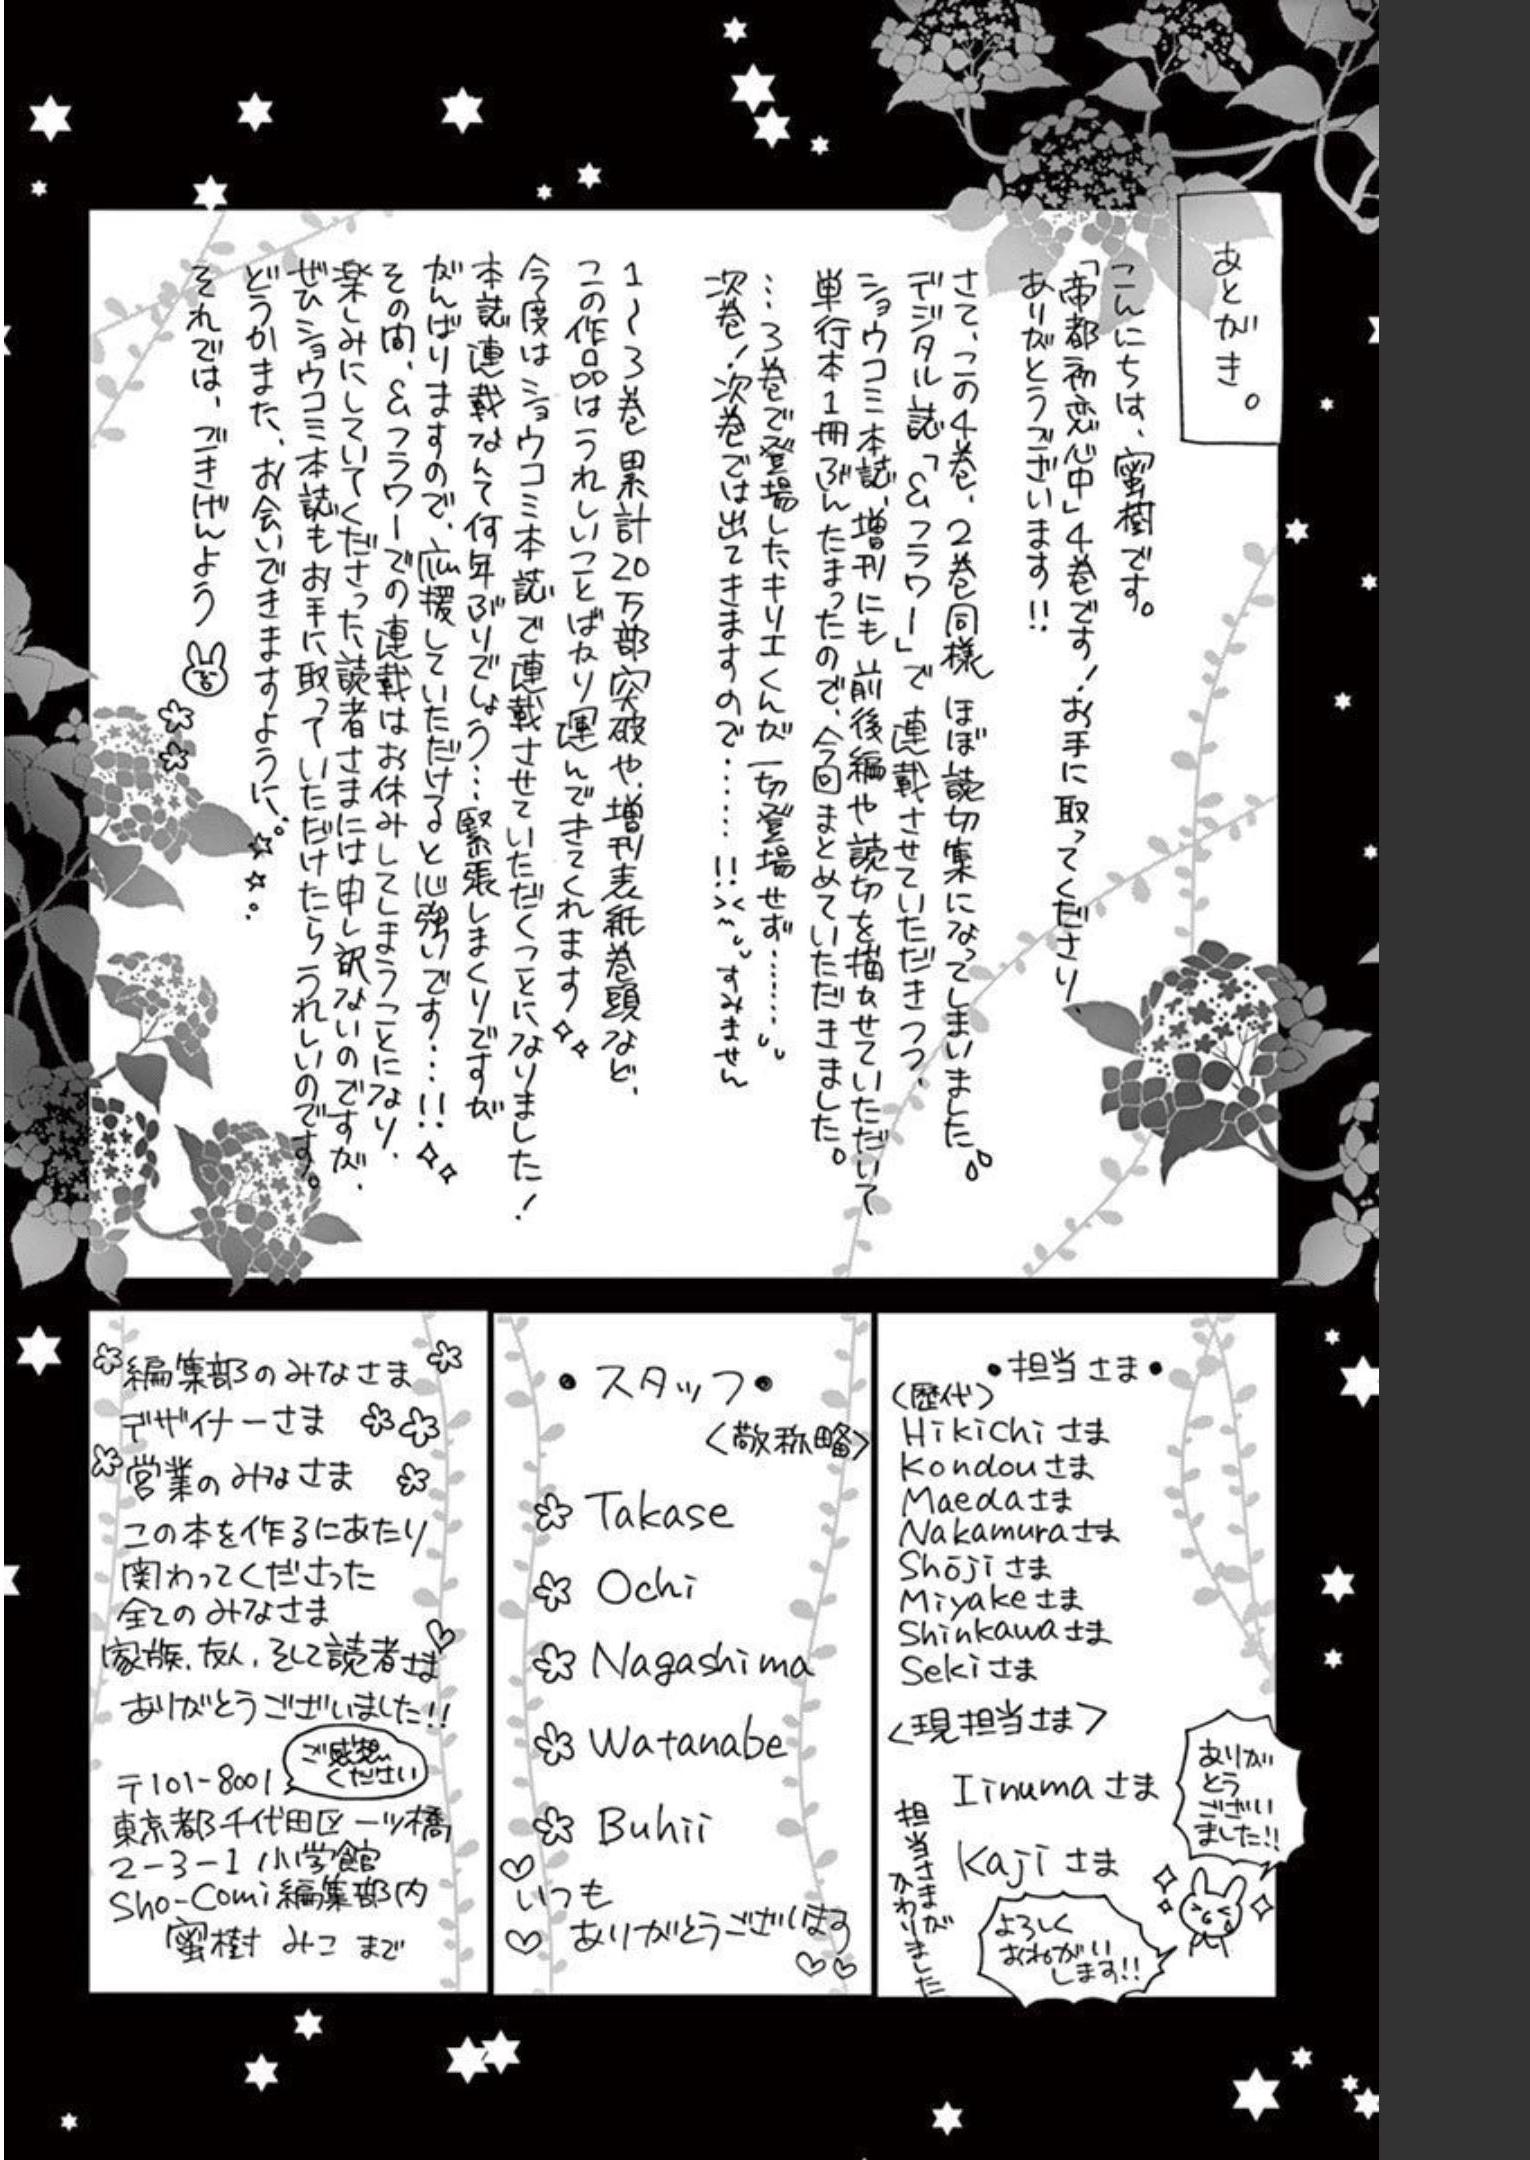 あとがき。
こんにちは、蜜樹です。
「帝都初恋心中」4巻です!お手に取ってくださり、
ありがとうございます!!
さて、この4巻、2巻同様ほぼ読切集になってしまいました。
デジタル誌「&フラワー」で連載させていただきつつ、
ショウコミ本誌、増刊にも前後編や読切を描かせていただいて
単行本1冊ぶんたまったので、今回まとめていただきました。
…3巻で登場したキリエくんが一切登場せず……
次巻!次巻では出てきますので……!!><すみません
1~3巻累計20万部突破や、増刊表紙巻頭など、
この作品はうれしいことばかり運んできてくれます
今度はショウコミ本誌で連載させていただくことになりました!
本誌連載なんて何年ぶりでしょう…緊張しまくりですが
がんばりますので、応援していただけると心強いです…!!
その間、&フラワーでの連載はお休みしてしまうことになり、
楽しみにしていてくださった読者さまには申し訳ないのですが、
ぜひショウコミ本誌もお手に取っていただけたらうれしいのです。
どうかまた、お会いできますように、
それでは、ごきげんよう
•担当さま•
〈歴代〉
Hikichiさま
Kondouさま
Maedaさま
Nakamuraさま
Shōjiさま
Miyakeさま
Shinkawaさま
Sekiさま
〈現担当さま〉
Iinumaさま
Kajiさま
担当さまが
かわりました
ありが
とう
ござい
ました!!
よろしく
おねがい
します!!
•スタッフ•
〈敬称略〉
Takase
Ochi
Nagashima
Watanabe
Buhii
いつも
ありがとうございます
編集部のみなさま
デザイナーさま
営業のみなさま
この本を作るにあたり
関わってくださった
全てのみなさま
家族、友人、そして読者さま
ありがとうございました!!
ご感想
ください
〒101-8001
東京都千代田区一ツ橋
2-3-1 小学館
Sho-Comi編集部内
蜜樹みこ まで